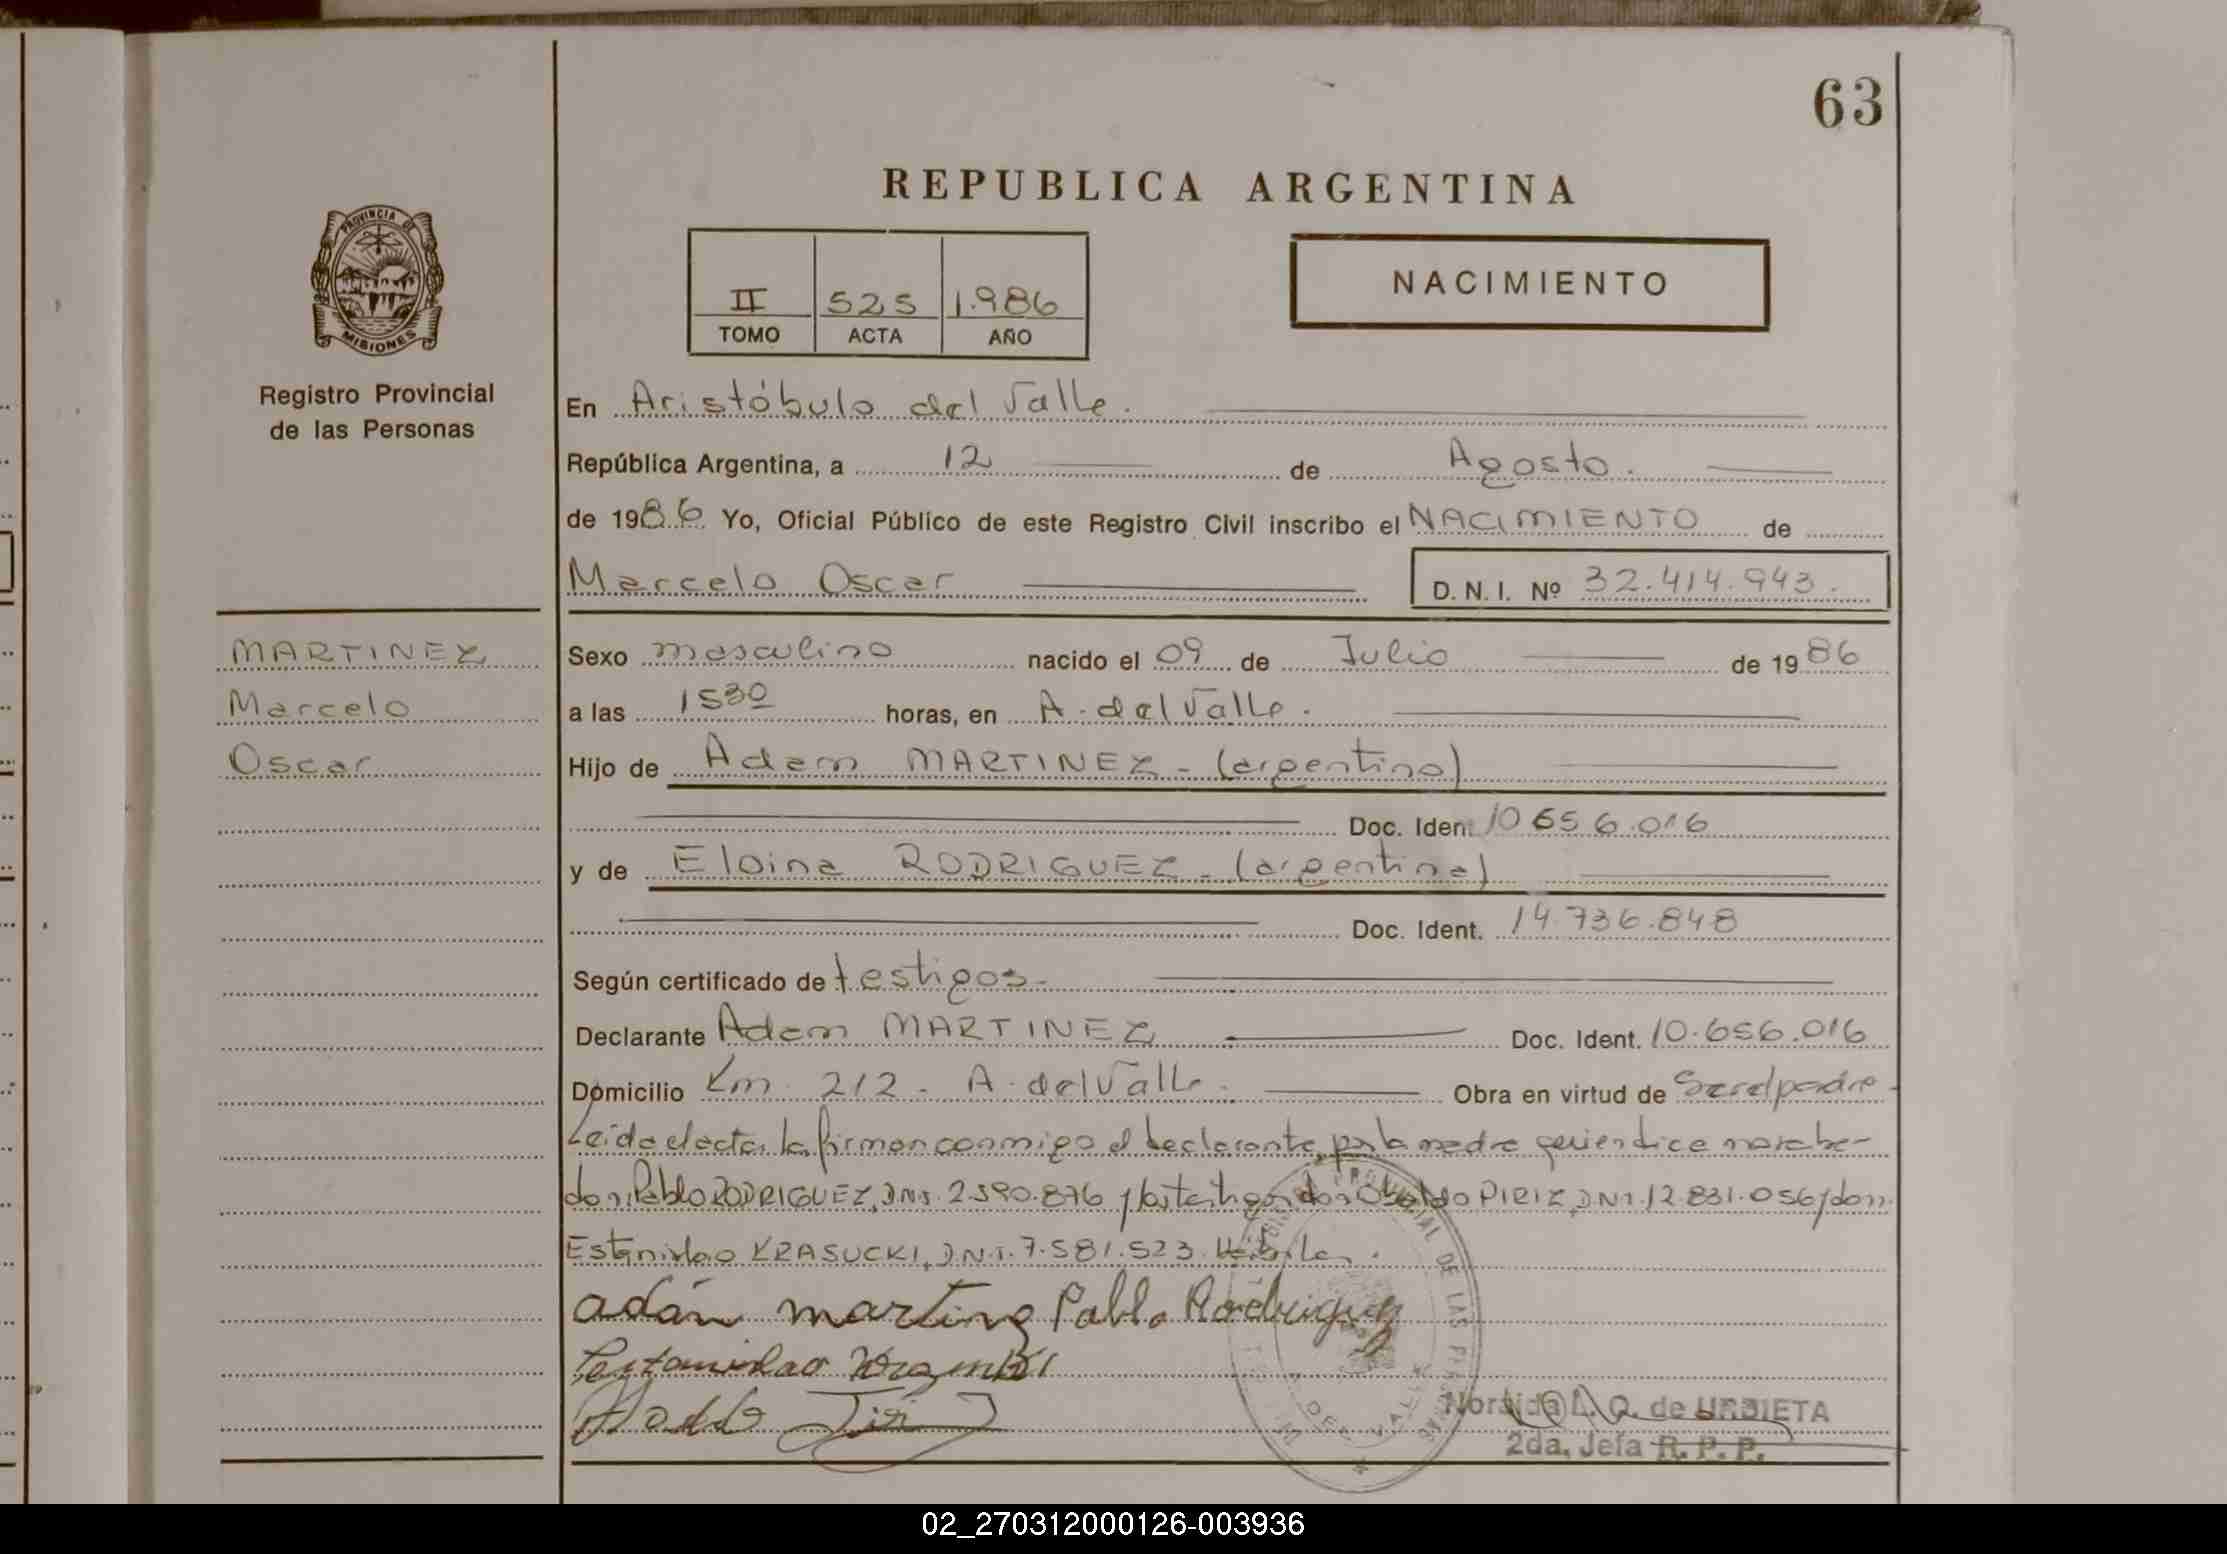 63
REPUBLICA ARGENTINA
PROVINCIA DE
MISIONES
Registro Provincial
de las Personas
II 525 1.986
TOMO ACTA AÑO
NACIMIENTO
En Aristóbulo del Valle.
República Argentina, a 12 de Agosto.
de 1986 Yo, Oficial Público de este Registro Civil inscribo el NACIMIENTO de
Marcelo Oscar D. N. I. Nº 32.414.943.
MARTINEZ
Marcelo
Oscar
Sexo masculino nacido el 09 de Julio de 1986
a las 1530 horas, en A. del Valle.
Hijo de Adam MARTINEZ - (argentino)
Doc. Ident. 10.656.016
y de Eloina RODRIGUEZ - (argentina)
Doc. Ident. 14.736.848
Según certificado de testigos -
Declarante Adam MARTINEZ Doc. Ident. 10.656.016
Domicilio Km. 212 - A. del Valle. Obra en virtud de Ser el padre -
Leída el acta, la firman conmigo el declarante, por la madre quien dice no sabe-
don Pablo RODRIGUEZ, D.N.I. 2.590.876 y los testigos don Osvaldo PIRIZ, D.N.I. 12.831.056 y don
Estanislao KRASUCKI, D.N.I. 7.581.523.
adán martinez Pablo Rodriguez
Norsida L. Q. de URBIETA
2da. Jefa R. P. P.
02_270312000126-003936